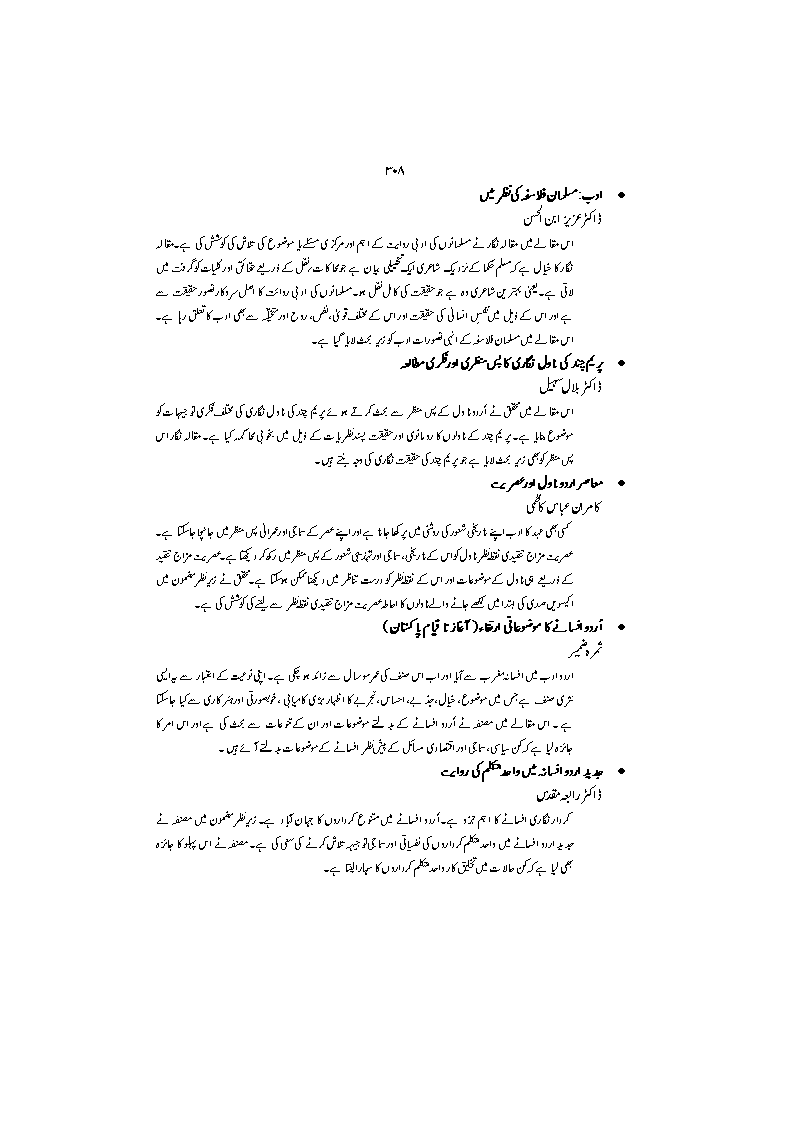 ۳۰۸
• ادب: مسلمان فلاسفہ کی نظر میں
ڈاکٹر عزیز ابن الحسن
اس مقالے میں مقالہ نگار نے مسلمانوں کی ادبی روایت کے اہم اور مرکزی مسئلے یا موضوع کی تلاش کی کوشش کی ہے۔ مقالہ
نگار کا خیال ہے کہ مسلم حکما کے نزدیک شاعری ایک تخییلی بیان ہے جو محاکات رنقل کے ذریعے حقائق اور کلیات کو گرفت میں
لاتی ہے۔ یعنی بہترین شاعری وہ ہے جو حقیقت کی کامل نقل ہو۔ مسلمانوں کی ادبی روائت کا اصل سروکار تصور حقیقت سے
ہے اور اس کے ذیل میں نفسِ انسانی کی حقیقت اور اس کے مختلف قویٰ، نفس، روح اور متخیّلہ سے بھی ادب کا تعلق رہا ہے۔
اس مقالے میں مسلمان فلاسفہ کے انہی تصورات ادب کو زیر بحث لایا گیا ہے۔
• پریم چند کی ناول نگاری کا پس منظری اور فکری مطالعہ
ڈاکٹر بلال سہیل
اس مقالے میں محقق نے اُردو ناول کے پس منظر سے بحث کرتے ہوئے پریم چند کی ناول نگاری کی مختلف فکری توجیہات کو
موضوع بنایا ہے۔ پریم چند کے ناولوں کا رومانوی اور حقیقت پسند نظریات کے ذیل میں بخوبی محاکمہ کیا ہے۔ مقالہ نگار اس
پس منظر کو بھی زیر بحث لایا ہے جو پریم چند کی حقیقت نگاری کی وجہ بنتے ہیں۔
• معاصر اردو ناول اور عصریت
کامران عباس کاظمی
کسی بھی عہد کا ادب اپنے تاریخی شعور کی روشنی میں پرکھا جاتا ہے اور اپنے عصر کے سماجی اور عمرانی پس منظر میں جانچا جاسکتا ہے۔
عصریت مزاج تنقیدی نقطہ نظر ناول کو اس کے تاریخی، سماجی اور تہذیبی شعور کے پس منظر میں رکھ کر دیکھتا ہے۔ عصریت مزاج تنقید
کے ذریعے ہی ناول کے موضوعات اور اس کے نقطہ نظر کو درست تناظر میں دیکھنا ممکن ہوسکتا ہے۔ محقق نے زیر نظر مضمون میں
اکیسویں صدی کی ابتدا میں لکھے جانے والے ناولوں کا احاطہ عصریت مزاج تنقیدی نقطہ نظر سے لینے کی کوشش کی ہے۔
• اُردو افسانے کا موضوعاتی ارتقاء (آغاز تا قیام پاکستان)
ثمرہ ضمیر
اردو ادب میں افسانہ مغرب سے آیا اور اب اس صنف کی عمر سو سال سے زائد ہو چکی ہے۔ اپنی نوعیت کے اعتبار سے یہ ایسی
نثری صنف ہے جس میں موضوع، خیال، جذبے، احساس، تجربے کا اظہار بڑی کامیابی، خوبصورتی اور ہنر کاری سے کیا جاسکتا
ہے۔ اس مقالے میں مصنفہ نے اُردو افسانے کے بدلتے موضوعات اور ان کے تنوعات سے بحث کی ہے اور اس امر کا
جائزہ لیا ہے کہ کن سیاسی، سماجی اور اقتصادی مسائل کے پیش نظر افسانے کے موضوعات بدلتے آئے ہیں۔
• جدید اردو افسانہ میں واحد متکلم کی روایت
ڈاکٹر رابعہ مقدس
کردار نگاری افسانے کا اہم جزو ہے۔ اُردو افسانے میں متنوع کرداروں کا جہان آباد ہے۔ زیر نظر مضمون میں مصنفہ نے
جدید اردو افسانے میں واحد متکلم کرداروں کی نفسیاتی اور سماجی توجیہہ تلاش کرنے کی سعی کی ہے۔ مصنفہ نے اس پہلو کا جائزہ
بھی لیا ہے کہ کن حالات میں تخلیق کار واحد متکلم کرداروں کا سہارا لیتا ہے۔